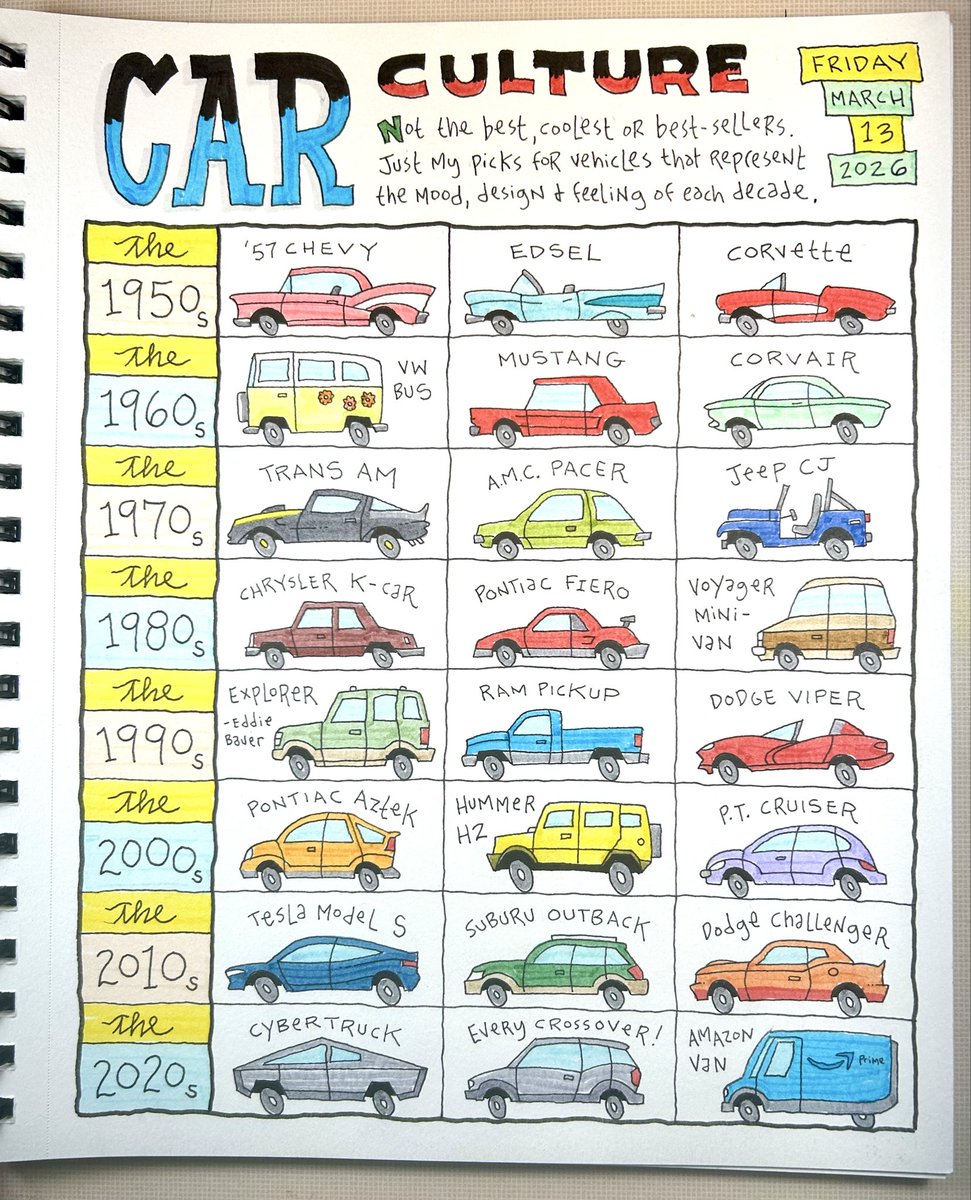 CAR CULTURE
Not the best, coolest or best-sellers.
Just my picks for vehicles that represent
the mood, design & feeling of each decade.
FRIDAY
MARCH
13
2026
The
1950s
'57 CHEVY
EDSEL
Corvette
The
1960s
VW
BUS
MUSTANG
CORVAIR
The
1970s
TRANS AM
A.M.C. PACER
Jeep CJ
The
1980s
CHRYSLER K-CAR
PONTIAC FIERO
Voyager
Mini-
Van
The
1990s
EXPLORER
-Eddie
Bauer
RAM PICKUP
DODGE VIPER
The
2000s
PONTIAC Aztek
HUMMER
H2
P.T. CRUISER
The
2010s
Tesla Model S
SUBURU OUTBACK
Dodge Challenger
The
2020s
CYBERTRUCK
EVERY CROSSOVER!
AMAZON
VAN
Prime